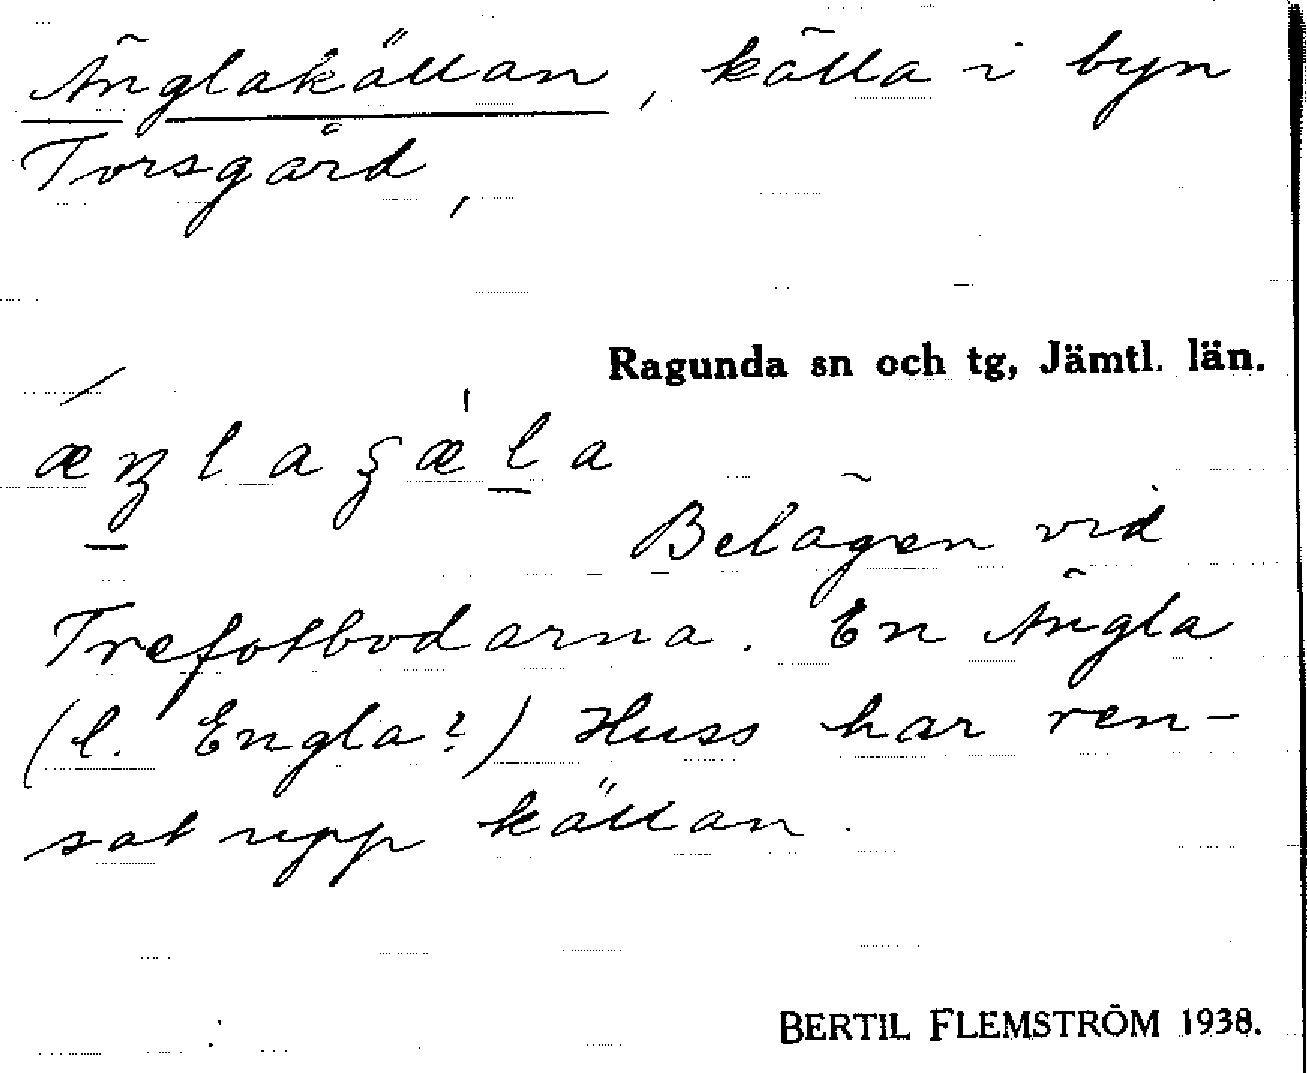 Änglakällan, källa i byn
Torsgård,
Ragunda sn och tg, Jämtl. län.
Belägen vid
Trefotbodarna. En Ängla
(l. Engla?) Huss har ren-
sat upp källan.
BERTIL FLEMSTRÖM 1938.